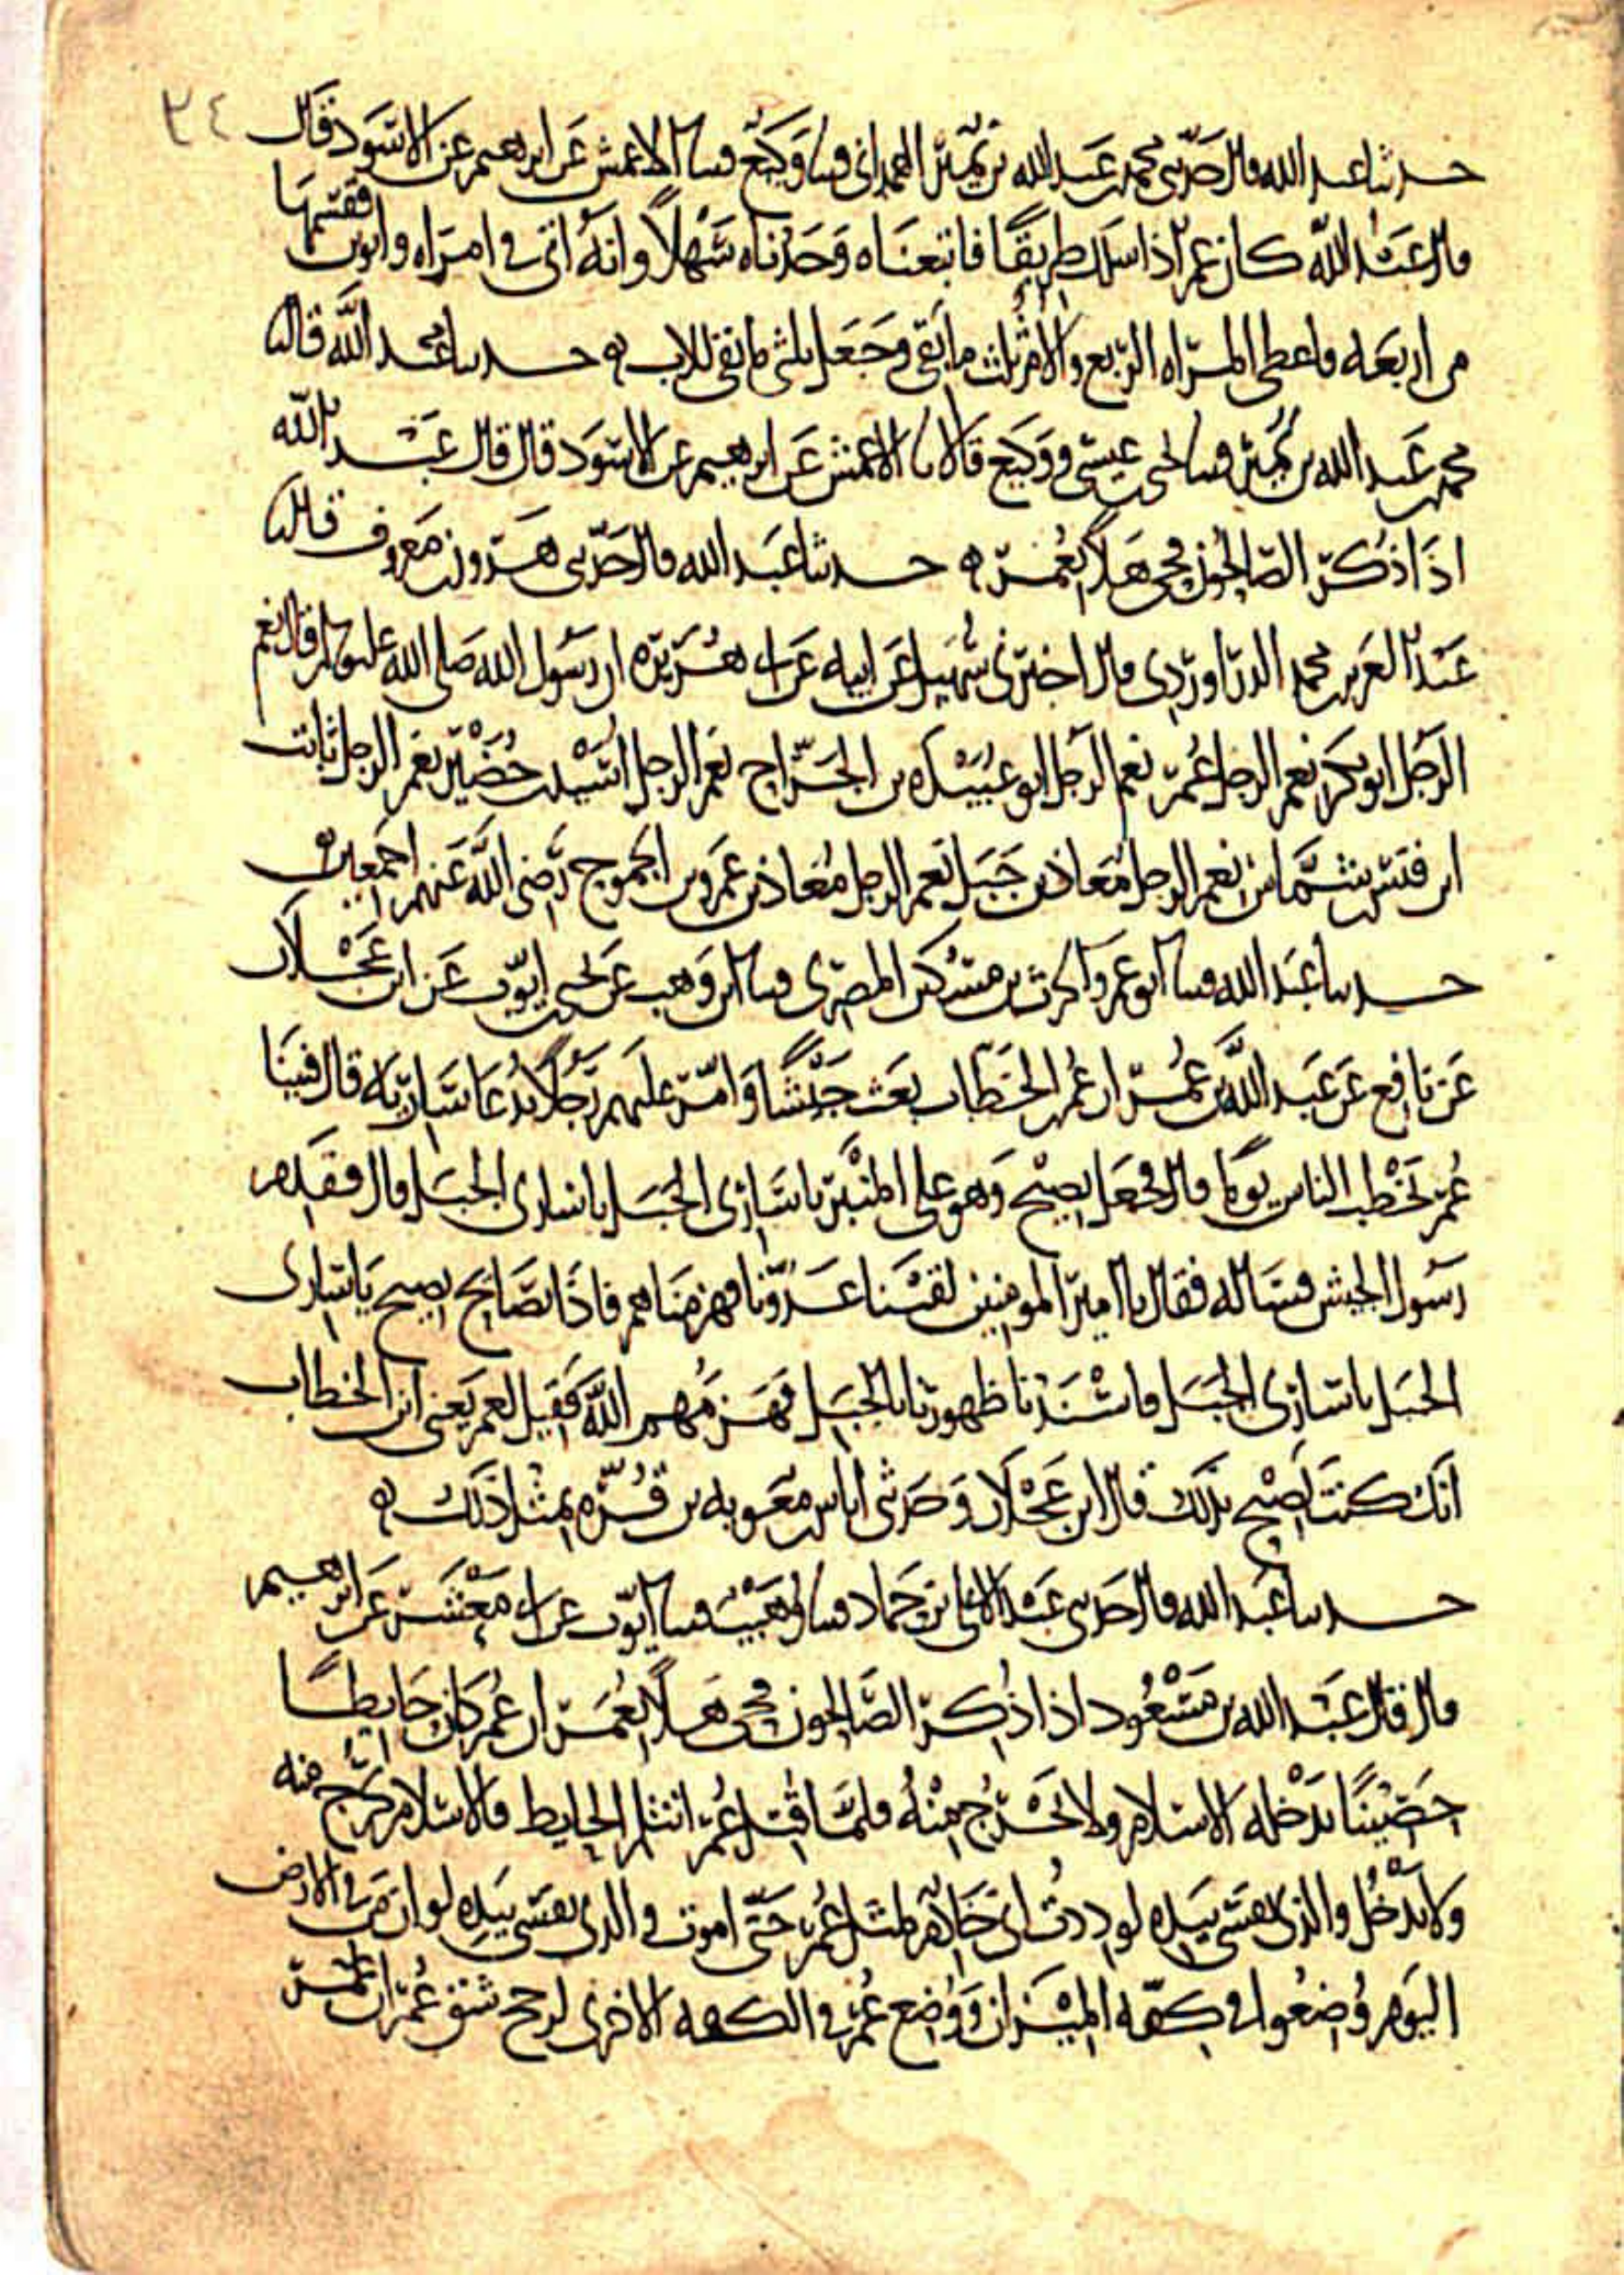 ٢٤
حدثنا عبد الله قال حدثني محمد بن عبد الله بن نمير الهمداني قثنا وكيع قثنا الاعمش عن ابرهيم عن الاسود قال
قال عبد الله كان عمر اذا سلك طريقا فاتبعناه وجدناه سهلا وانه اتى في امراه وابوين فقسمها
من اربعه فاعطى المراه الربع والام ثلث ما بقى وجعل ثلثي ما بقى للاب ه حدثنا عبد الله قال ثنا
محمد بن عبد الله بن نمير قثنا يحيى بن عيسى ووكيع قالا نا الاعمش عن ابرهيم عن الاسود قال قال عبد الله
اذا ذكر الصالحون فحى هلا بعمر ه حدثنا عبد الله قال حدثني هرون بن معروف قال ثنا
عبد العزيز بن محمد الدراوردي قال اخبرني سهيل عن ابيه عن ابي هريره ان رسول الله صلى الله عليه وسلم قال نعم
الرجل ابو بكر نعم الرجل عمر نعم الرجل ابو عبيده بن الجراح نعم الرجل اسيد بن حضير نعم الرجل ثابت
ابن قيس بن شماس نعم الرجل معاذ بن جبل نعم الرجل معاذ بن عمرو بن الجموح رضي الله عنهم اجمعين ه
حدثنا عبد الله قثنا ابو عمرو الحرث بن مسكين المصري قثنا ابن وهب عن يحيى بن ايوب عن ابن عجلان
عن نافع عن عبد الله بن عمر ان عمر بن الخطاب بعث جيشا وامر عليهم رجلا يدعا ساريه قال فبينا
عمر يخطب الناس يوما قال فجعل يصيح وهو على المنبر يا ساري الجبل يا ساري الجبل قال فقدم
رسول الجيش فساله فقال يا امير المومنين لقينا عدونا فهزمناهم فاذا بصايح يصيح يا ساري
الجبل يا ساري الجبل فاسندنا ظهورنا بالجبل فهزمهم الله فقيل لعمر يعني ابن الخطاب
انك كنت تصيح بذلك قال ابن عجلان وحدثني اياس بن معويه بن قره بمثل ذلك ه
حدثنا عبد الله قال حدثني عبد الاعلى بن حماد قثنا وهيب قثنا ايوب عن ابي معشر عن ابرهيم
قال قال عبد الله بن مسعود اذا ذكر الصالحون فحى هلا بعمر ان عمر كان حايطا
حصينا يدخله الاسلام ولا يخرج منه فلما قتل عمر انثلم الحايط فالاسلام يخرج منه
ولا يدخل والذي نفسي بيده لوددت اني خادم لمثل عمر حتى اموت والذي نفسي بيده لو ان من في الارض
اليوم وضعوا في كفه الميزان ووضع عمر في الكفه الاخرى لرجح شق عمر ان عمر